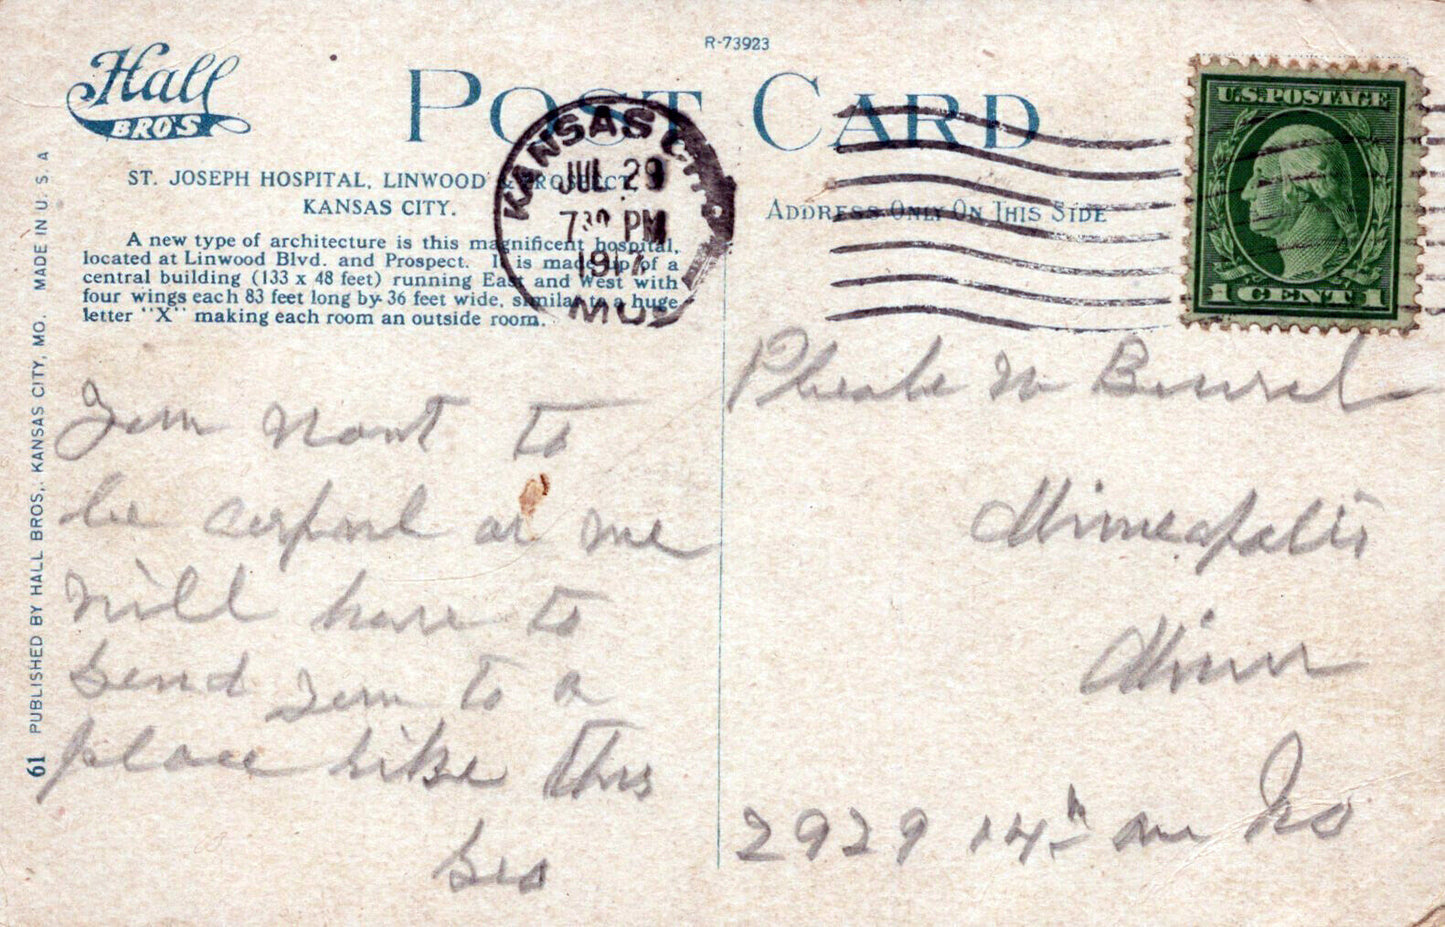 R-73923
Hall
BRO'S
POST CARD
ST. JOSEPH HOSPITAL, LINWOOD & PROSPECT,
KANSAS CITY.
A new type of architecture is this magnificent hospital,
located at Linwood Blvd. and Prospect. It is made up of a
central building (133 x 48 feet) running East and West with
four wings each 83 feet long by 36 feet wide, similar to a huge
letter "X" making each room an outside room.
KANSAS CITY
JUL 29
7 30 PM
1917
MO.
ADDRESS ONLY ON THIS SIDE
U.S. POSTAGE
1 CENT 1
61 PUBLISHED BY HALL BROS., KANSAS CITY, MO. MADE IN U. S. A
to
be or me
will have to
send to a
place like this
Sis
Minneapolis
Minn
2929 14th Ave So